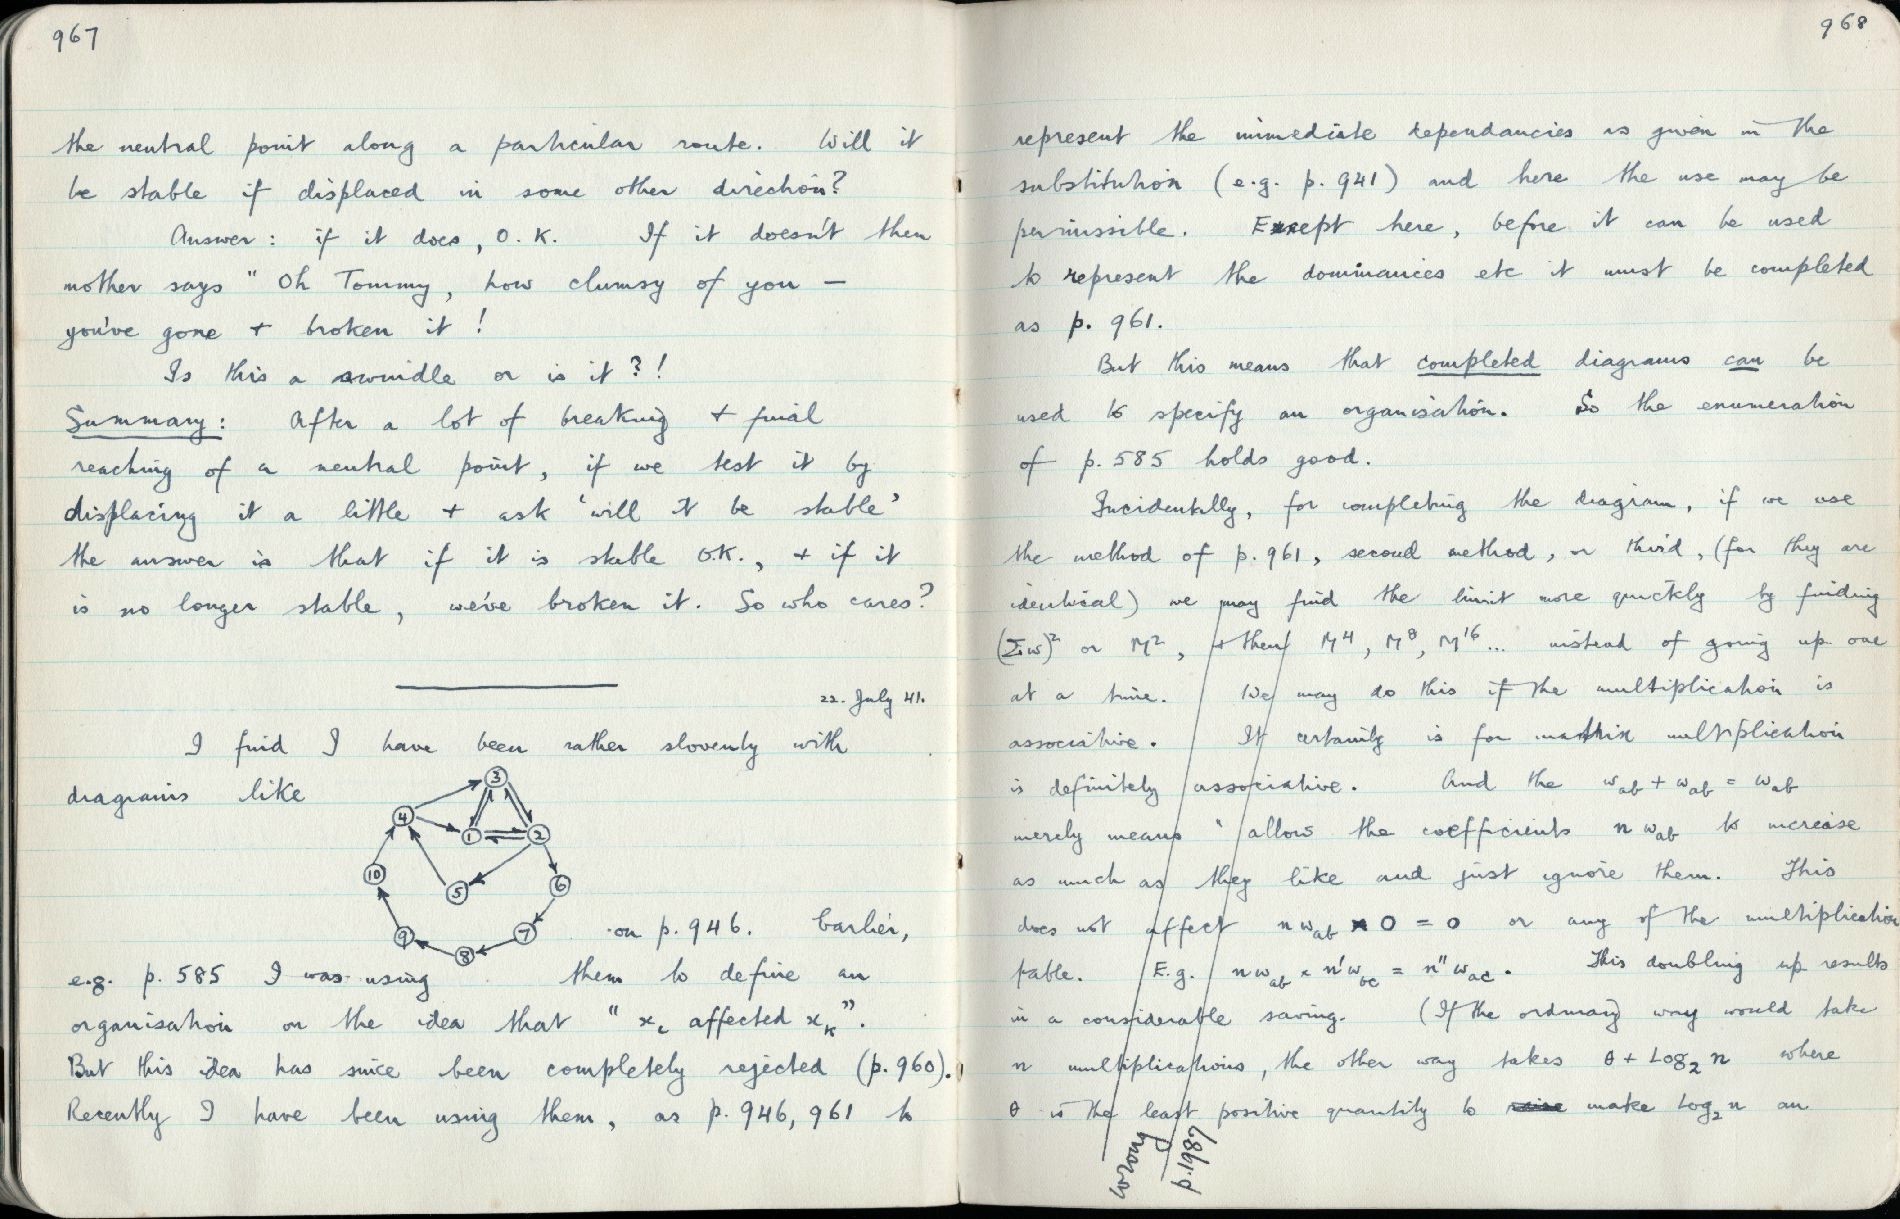 967
the neutral point along a particular route. Will it
be stable if displaced in some other direction?
Answer: if it does, O.K. If it doesn't then
mother says "Oh Tommy, how clumsy of you –
you've gone + broken it!
Is this a swindle or is it?!
Summary: After a lot of breaking + final
reaching of a neutral point, if we test it by
displacing it a little + ask 'will it be stable'
the answer is that if it is stable O.K., + if it
is no longer stable, we've broken it. So who cares?
22. July 41.
I find I have been rather slovenly with
diagrams like
3
4
1
2
10
5
6
9
7
8
on p. 946. Earlier,
e.g. p. 585 I was using them to define an
organisation on the idea that "x_i affected x_k".
But this idea has since been completely rejected (p. 960).
Recently I have been using them, as p. 946, 961 to
968
represent the immediate dependancies as given in the
substitution (e.g. p. 941) and here the use may be
permissible. Except here, before it can be used
to represent the dominances etc it must be completed
as p. 961.
But this means that completed diagrams can be
used to specify an organisation. So the enumeration
of p. 585 holds good.
Incidentally, for completing the diagram, if we use
the method of p. 961, second method, or third, (for they are
identical) we may find the limit more quickly by finding
(Σw)² or M², + then M⁴, M⁸, M¹⁶ ... instead of going up one
at a time. We may do this if the multiplication is
associative. It certainly is for matrix multiplication
is definitely associative. And the w_ab + w_ab = w_ab
merely means "allow the coefficients n w_ab to increase
as much as they like and just ignore them. This
does not affect n w_ab × 0 = 0 or any of the multiplication
table. E.g. n w_ab × n' w_bc = n" w_ac. This doubling up results
in a considerable saving. (If the ordinary way would take
n multiplications, the other way takes θ + Log₂ n where
θ is the least positive quantity to make Log₂ n an
wrong
p. 1987